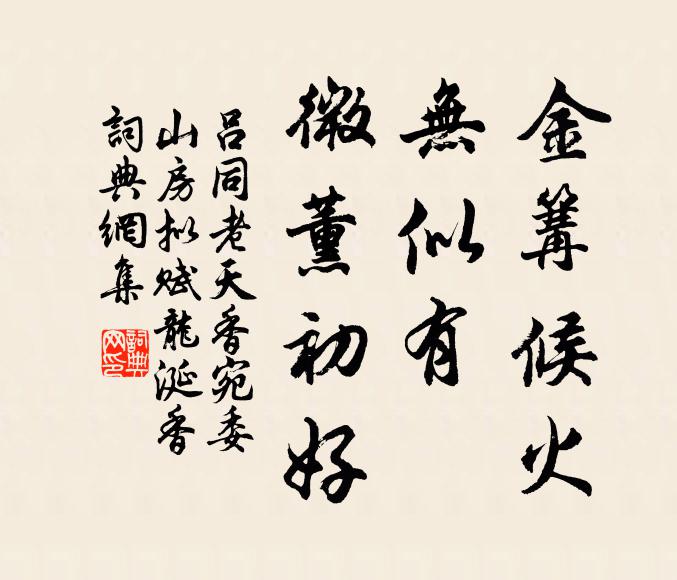 金篝候火
無似有
微薰初好
呂同老天香宛委
山房拟賦龍涎香
詞典網集
詞典
网印